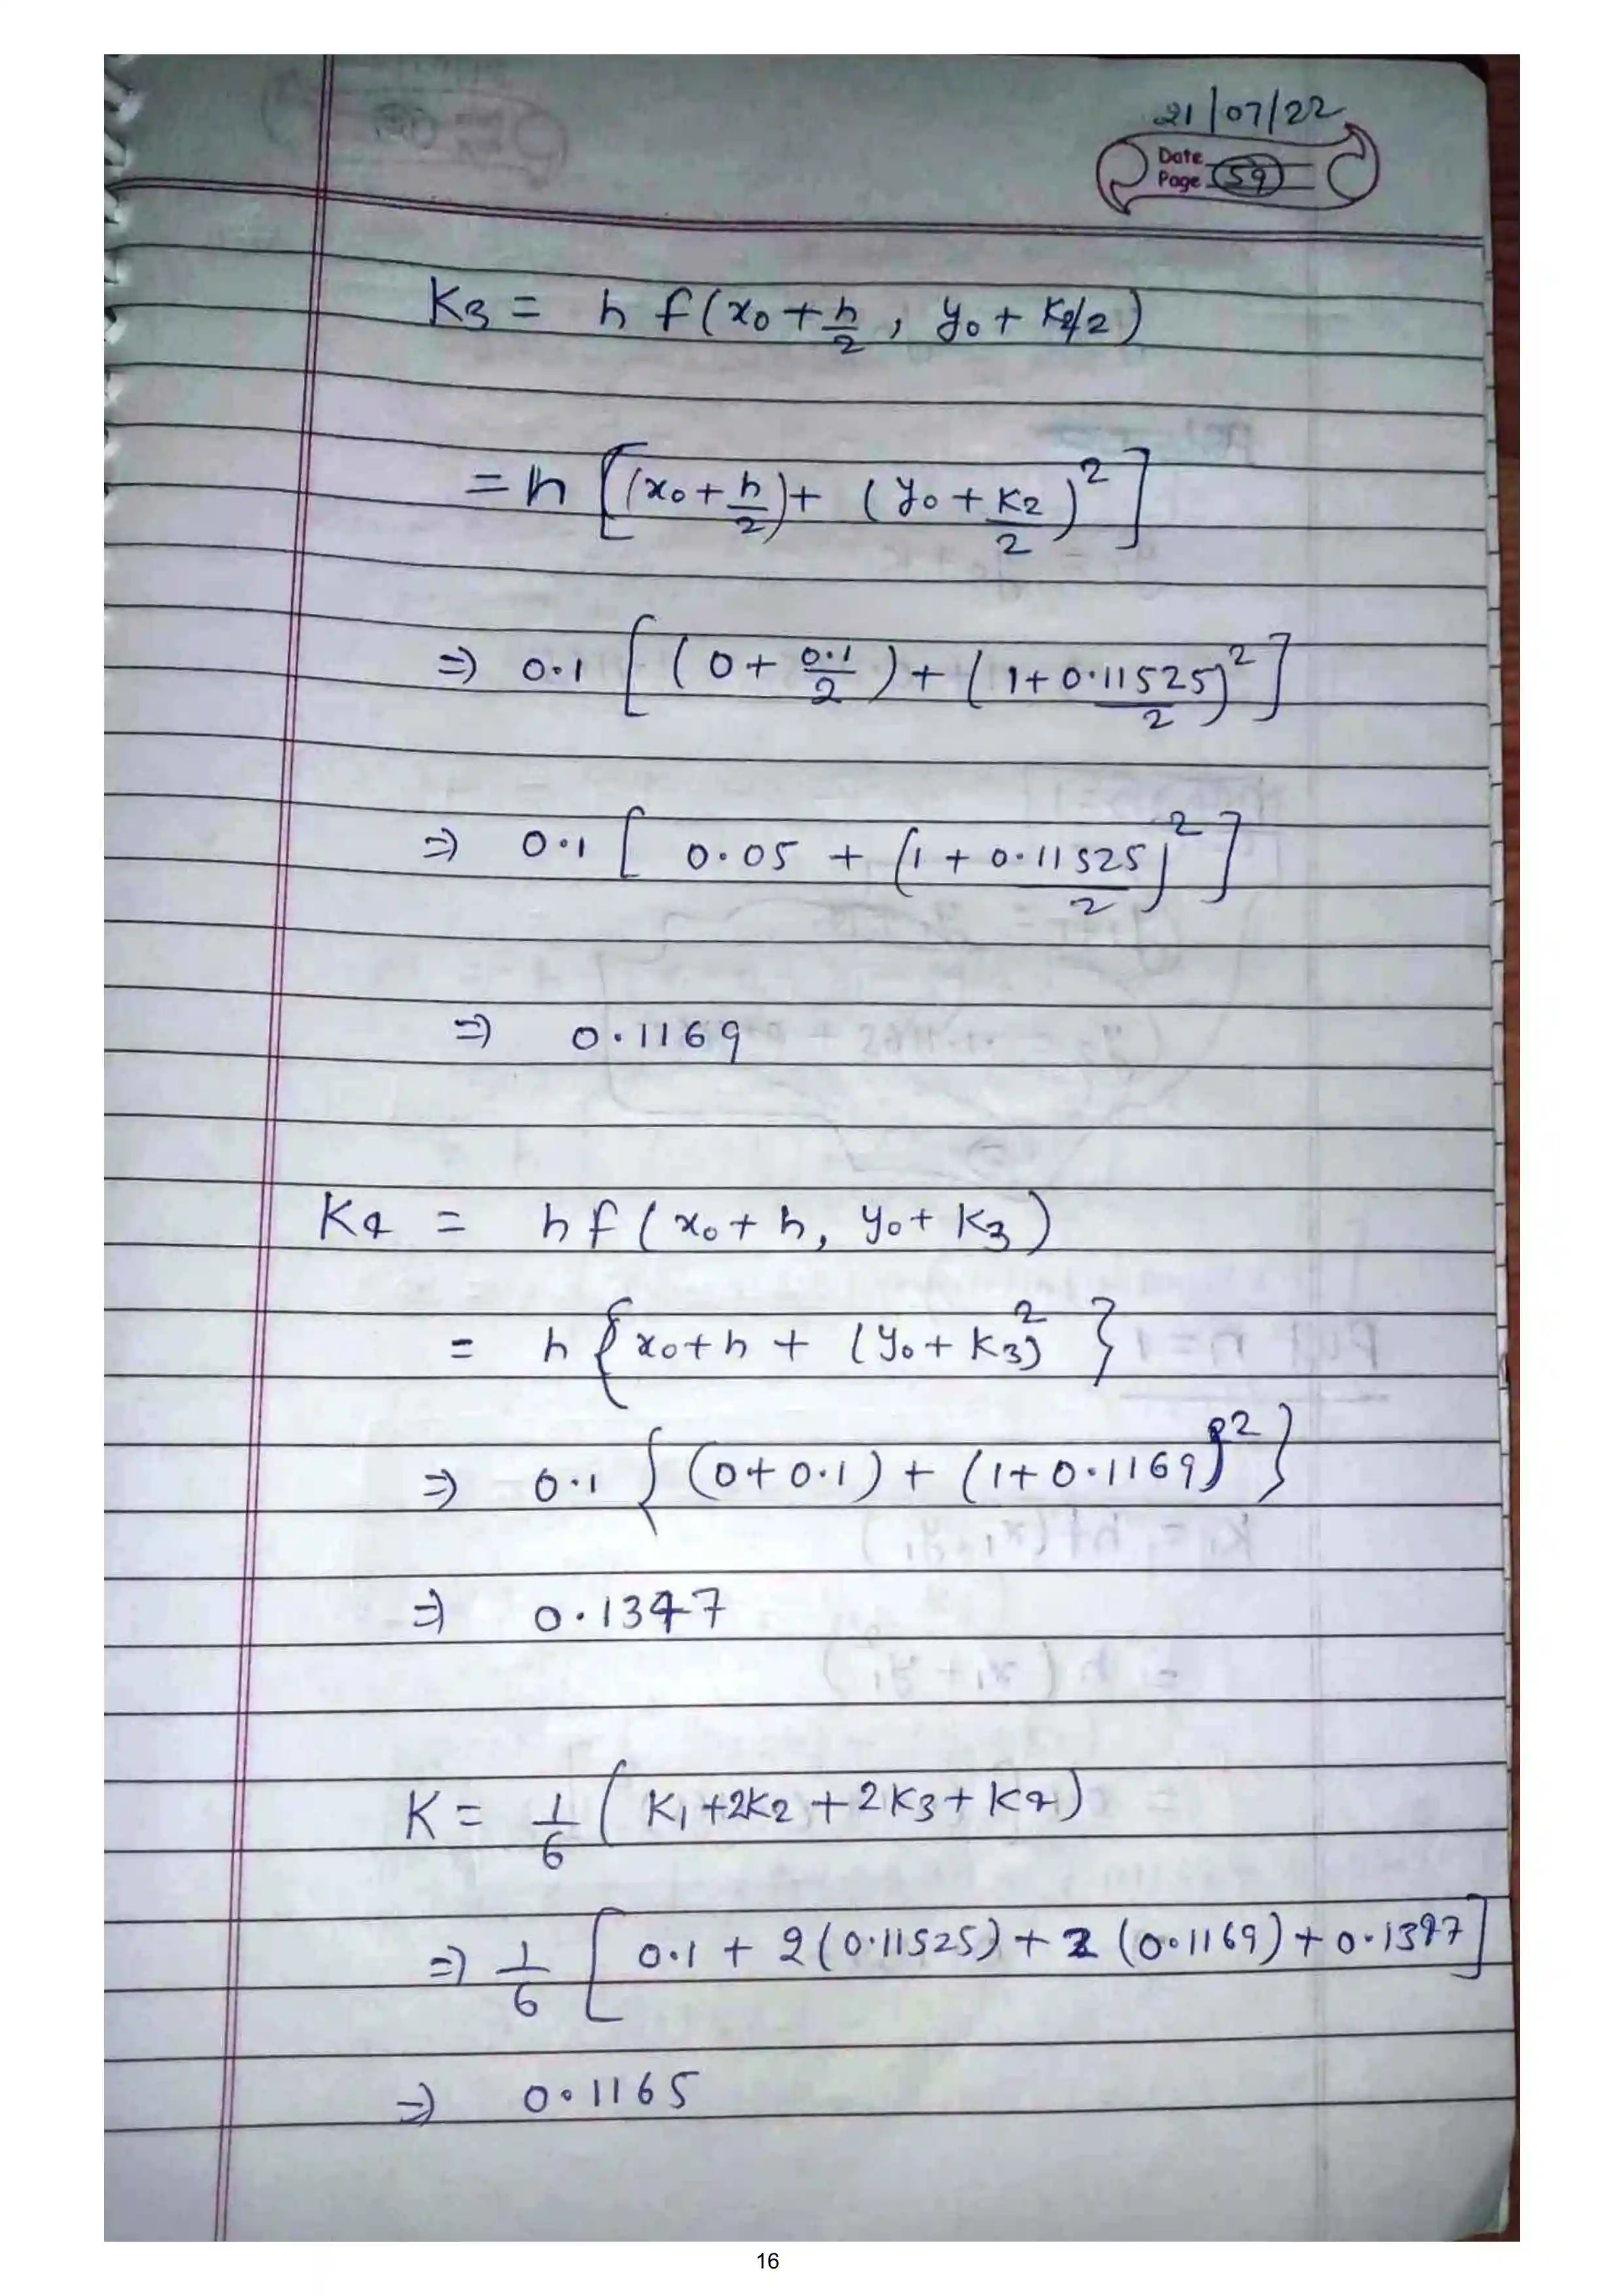 21/07/22
Date
Page 59
K3 = h f(x0 + h/2 , y0 + K2/2)
= h [(x0 + h/2) + (y0 + K2/2)²]
⇒ 0.1 [(0 + 0.1/2) + (1 + 0.11525/2)²]
⇒ 0.1 [0.05 + (1 + 0.11525/2)²]
⇒ 0.1169
K4 = h f(x0 + h, y0 + K3)
= h {x0 + h + (y0 + K3)²}
⇒ 0.1 {(0 + 0.1) + (1 + 0.1169)²}
⇒ 0.1347
K = 1/6 (K1 + 2K2 + 2K3 + K4)
⇒ 1/6 [0.1 + 2(0.11525) + 2(0.1169) + 0.1347]
⇒ 0.1165
16